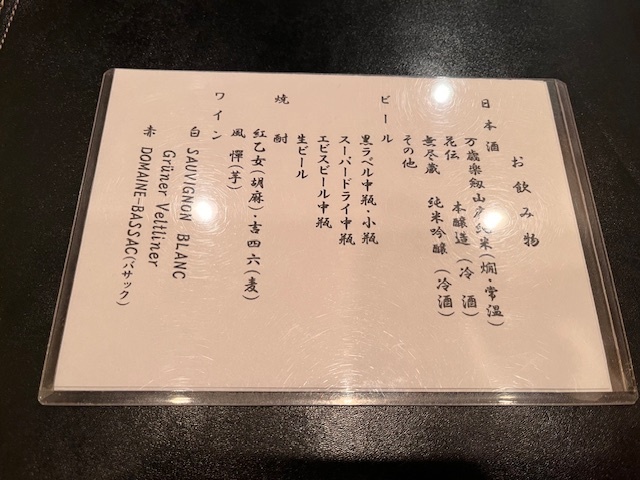 お飲み物
日本酒
万歳楽剱山廃純米(燗・常温)
花伝 本醸造(冷酒)
無尽蔵 純米吟醸(冷酒)
その他
ビール
黒ラベル中瓶・小瓶
スーパードライ中瓶
エビスビール中瓶
生ビール
焼酎
紅乙女(胡麻)・吉四六(麦)
風憚(芋)
ワイン
白 SAUVIGNON BLANC
Grüner Veltliner
赤 DOMAINE-BASSAC(バサック)